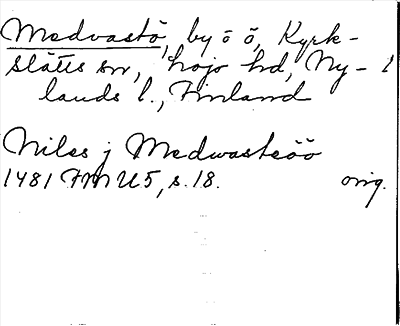 Medvastö, by ö ö, Kyrk-
slätts sn, Lojo hd, Ny-
lands l., Finland
Niles j Medwasteöö
1481 FMU5, s. 18. orig.